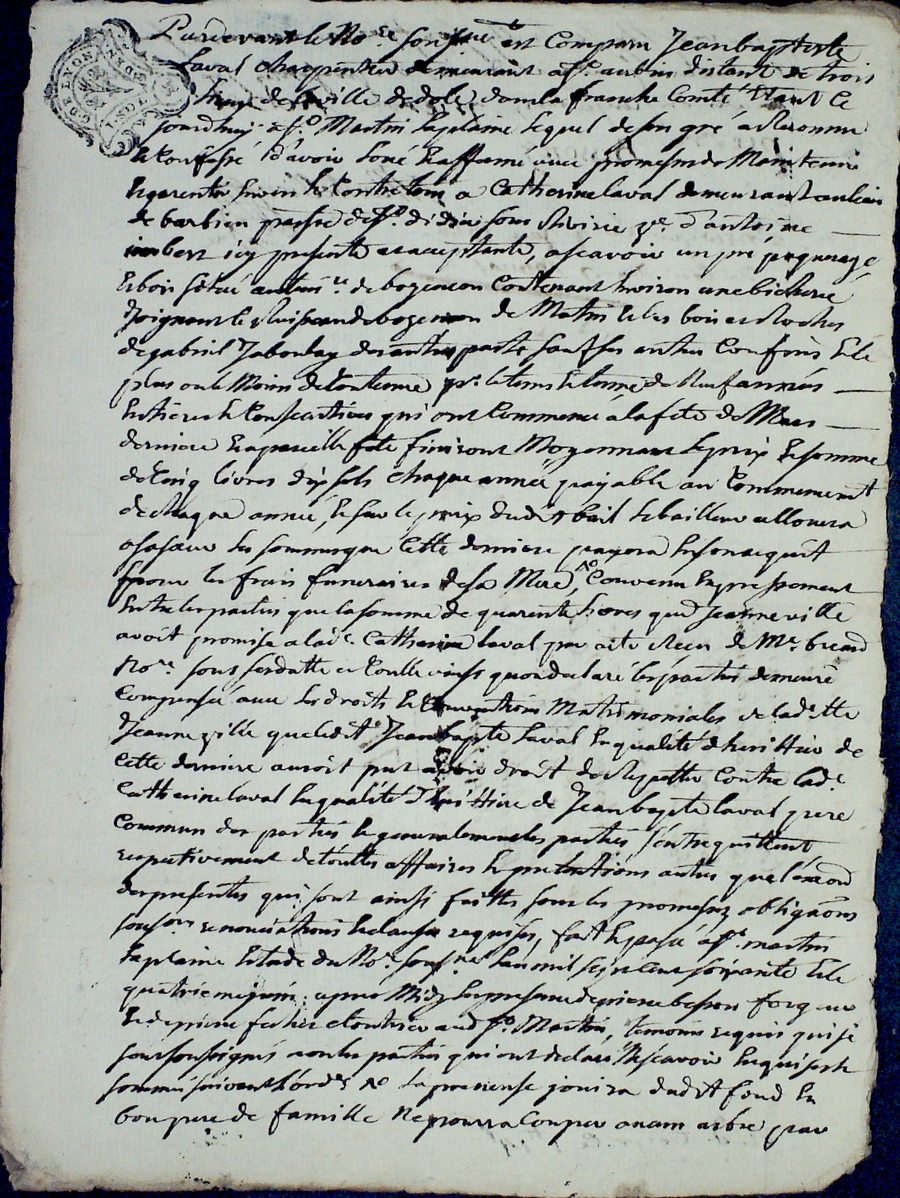 Pardevant le No.re sous.né est Comparu Jean baptiste
Laval charpentier demeurant a st. aubin distant de trois
lieux de la ville de dole dans la franche Comté Etant Ce
jourdhuy a st. Martin la plaine lequel de son gré a Reconnu
Et Confessé d'avoir loué Et affermé avec promesse de Maintenir
Et garentir Envers Et Contre tous a Catherine laval demeurant au lieu
de barbieu parroisse de st. didier sous Riverie ve. d'antoine
imbert icy presente et acceptante, ascavoir un pré paquerage
Et bois situé au terri.re de bozancon Contenant Environ une bicherée
joignant le Ruisseau de bozancon de Matin Et les bois et Roches
de gabriel Jaboulay des autres parts sauf ses autres Confins Et le
plus ou le Moins de Contenue pr. le tems Et terme de Neuf années
Entieres Et Consecutives qui ont Commencé a la fete de Mars
derniere Et a pareille fete finiront Moyennant le prix Et somme
de Cinq livres dix sols chaque année payable au Commencement
de chaque année, Et sur le prix dudit bail le bailleur allouera
a sa sœur les sommes que Cette derniere payera En son acquit
pour les frais funeraires de sa Mere, Convenu Expressement
Entre les parties que la somme de quarente livres que Jeanne ville
avoit promise a lad.e Catherine laval par acte Recu de Me.
No.re sous sa datte et Controlle ainsy que declaré les parties demeure
Compensée avec les droits Et Conventions Matrimoniales de laditte
Jeanne ville que ledit Jean bapte laval En qualité d'heritier de
Cette derniere auroit put avoir droit de Repetter Contre lad.e
Catherine laval En qualité d'heritiere de Jean bapte laval pere
Commun des parties Et generalement les parties s'entrequittent
respectivement de touttes affaires Et pretentions autres que l'exeon
des presentes qui sont ainsi faittes sous les promesses obligaons
soumons renonciations Et clauses requises, fait Et passé a st. martin
la plaine Etude du No.re sous.né l'an mil sept cent soixante Et le
quatrieme juin apres Midy En presence de pierre besson forgeur
Et de pierre cloutier aud st. Martin, temoins requis qui se
sont soussignés non les parties qui ont declaré Ne scavoir Enquis et
sommés suivant l'orde. la preneuse jouira dudit fond En
bon pere de famille Ne pourra Couper aucun arbre par